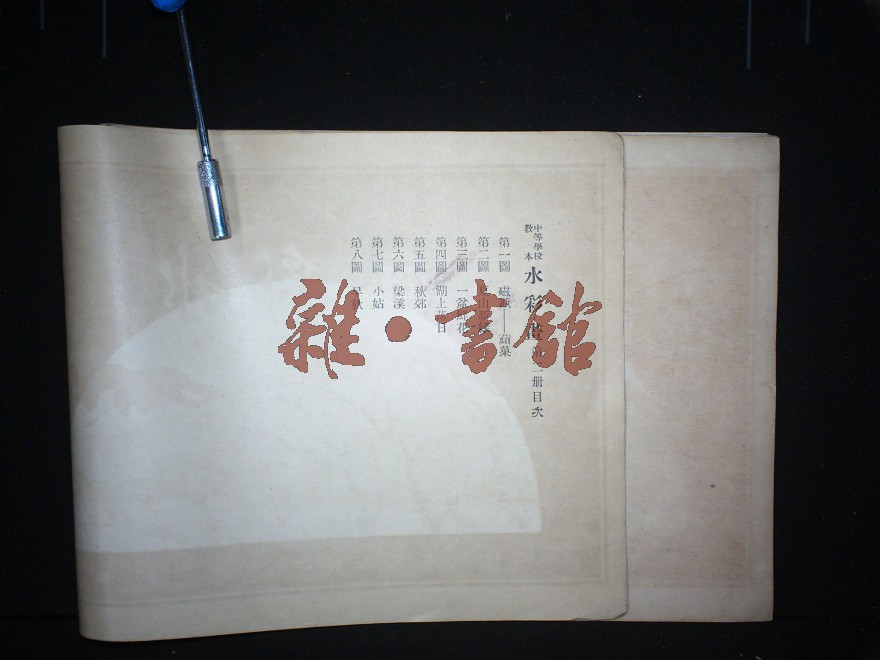 中等學校
教本
水彩畫第二册目次
第一圖 磁 ——蘋菓
第二圖 山
第三圖 一盆 花
第四圖 湖上落日
第五圖 秋郊
第六圖 梁溪
第七圖 小姑
第八圖
雜·書館